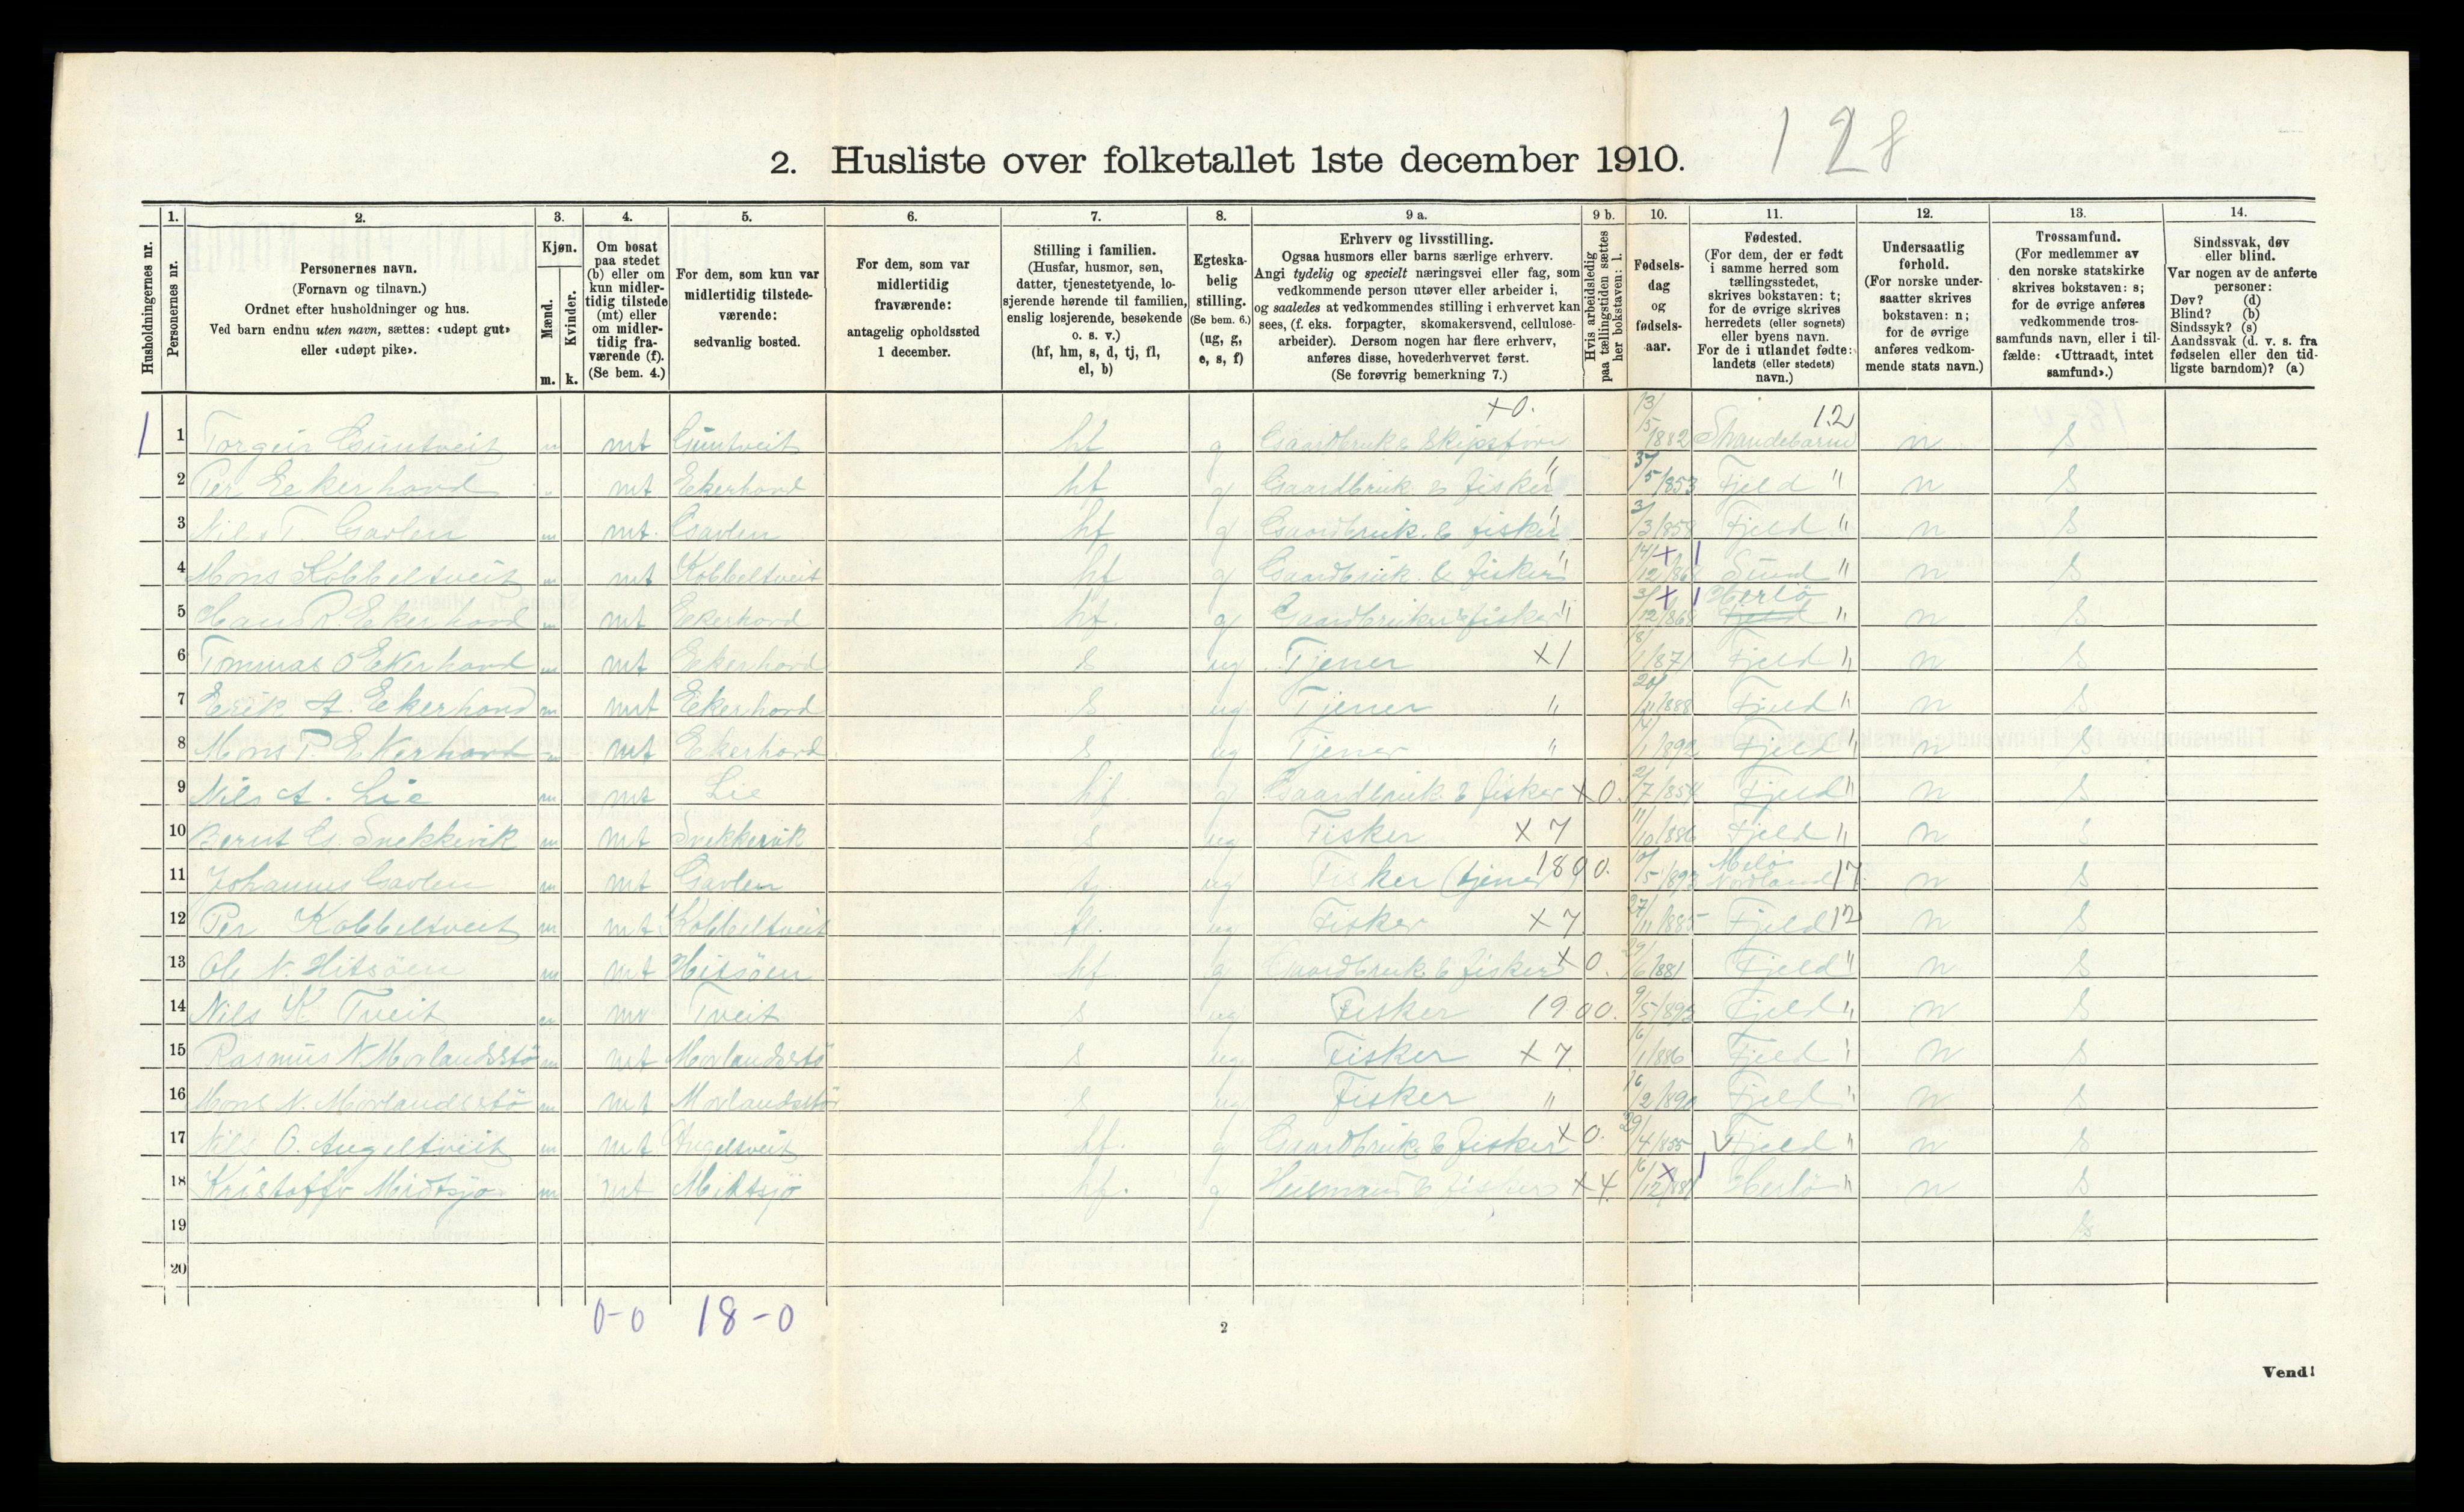 128
2. Husliste over folketallet 1ste december 1910.
Husholdningernes nr.
1.
Personernes nr.
2.
Personernes navn.
(Fornavn og tilnavn.)
Ordnet efter husholdninger og hus.
Ved barn endnu uten navn, sættes: «udøpt gut»
eller «udøpt pike».
3.
Kjøn.
Mænd.
Kvinder.
m. k.
4.
Om bosat
paa stedet
(b) eller om
kun midler-
tidig tilstede
(mt) eller
om midler-
tidig fra-
værende (f).
(Se bem. 4.)
5.
For dem, som kun var
midlertidig tilstede-
værende:
sedvanlig bosted.
6.
For dem, som var
midlertidig
fraværende:
antagelig opholdssted
1 december.
7.
Stilling i familien.
(Husfar, husmor, søn,
datter, tjenestetyende, lo-
sjerende hørende til familien,
enslig losjerende, besøkende
o. s. v.)
(hf, hm, s, d, tj, fl,
el, b)
8.
Egteska-
belig
stilling.
(Se bem. 6.)
(ug, g,
e, s, f)
9 a.
Erhverv og livsstilling.
Ogsaa husmors eller barns særlige erhverv.
Angi tydelig og specielt næringsvei eller fag, som
vedkommende person utøver eller arbeider i,
og saaledes at vedkommendes stilling i erhvervet kan
sees, (f. eks. forpagter, skomakersvend, cellulose-
arbeider). Dersom nogen har flere erhverv,
anføres disse, hovederhvervet først.
(Se forøvrig bemerkning 7.)
9 b.
Hvis arbeidsledig
paa tællingstiden sættes
her bokstaven: l.
10.
Fødsels-
dag
og
fødsels-
aar.
11.
Fødested.
(For dem, der er født
i samme herred som
tællingsstedet,
skrives bokstaven: t;
for de øvrige skrives
herredets (eller sognets)
eller byens navn.
For de i utlandet fødte:
landets (eller stedets)
navn.)
12.
Undersaatlig
forhold.
(For norske under-
saatter skrives
bokstaven: n;
for de øvrige
anføres vedkom-
mende stats navn.)
13.
Trossamfund.
(For medlemmer av
den norske statskirke
skrives bokstaven: s;
for de øvrige anføres
vedkommende tros-
samfunds navn, eller i til-
fælde: «Uttraadt, intet
samfund».)
14.
Sindssvak, døv
eller blind.
Var nogen av de anførte
personer:
Døv? (d)
Blind? (b)
Sindssyk? (s)
Aandssvak (d. v. s. fra
fødselen eller den tid-
ligste barndom)? (a)
1 1 Torgeir Guntveit m mt Guntveit hf g Gaardbruk & Skipsfører +0. 13/5 1882 Strandebarm 12 n s
2 Per Eekerhovd " mt Ekerhovd hf g Gaardbruk & fisker " /5 1853 Fjeld " n s
3 Nils T. Gavlen m mt. Gavlen hf g Gaardbruk. & fisker " 3/3 1858 Fjeld " n s
4 Mons Kobbeltveit m mt Kobbeltveit hf g Gaardbruk. & fisker " 14/12 Sund " n s
5 Hans R. Ekerhovd m mt Eekerhovd hf. g Gaardbruker & fisker " 3/12 Herlö Fjeld " n s
6 Tommas O Ekerhovd m mt Eekerhovd s ug Tjener X1 18/1 1871 Fjeld " n s
7 Erik A. Ekerhovd m mt Eekerhovd s ug Tjener " 20/11 1888 Fjeld " n s
8 Mons P. Ekerhovd m mt Ekerhovd. s ug Tjener " /1 1892 Fjeld " n s
9 Nils A. Lie m mt Lie hf g Gaardbruk & fisker X 0. 2/7 1854 Fjeld " n s
10 Bernt G. Snekkevik m mt Snekkevik s ug Fisker X 7 11/10 1886 Fjeld " n s
11 Johannes Gavlen m mt Gavlen tj. ug Fisker (tjener 1800. 10/5 1893 Melö Nordland 17. n s
12 Per Kobbeltveit m mt Kobbeltveit fl. ug Fisker X 7 27/11 1885 Fjeld 12 n s
13 Ole N. Hitsöen m mt Hitsöen hf g Gaardbruk & fisker X 0. 29/6 1881 Fjeld " n s
14 Nils K Tveit m mt Tveit s ug Fisker 1900. 9/5 1893 Fjeld " n s
15 Rasmus N. Morlandstö m mt Morlandstö s ug Fisker X 7. 6/1 1886 Fjeld " n s
16 Mons N. Morlandstö m mt Morlandstö s ug Fisker " 16/2 1890 Fjeld " n s
17 Nils O. Angeltveit m mt Angeltveit hf. g Gaardbruk & fisker X 0. 29/4 1855 Fjeld " n s
18 Kristoffer Midtsjö m mt Midtsjö hf. g Husmand & fisker X 4. 16/12 1881 Herlö " n s
19 s
20
0-0 18-0
2
Vend!